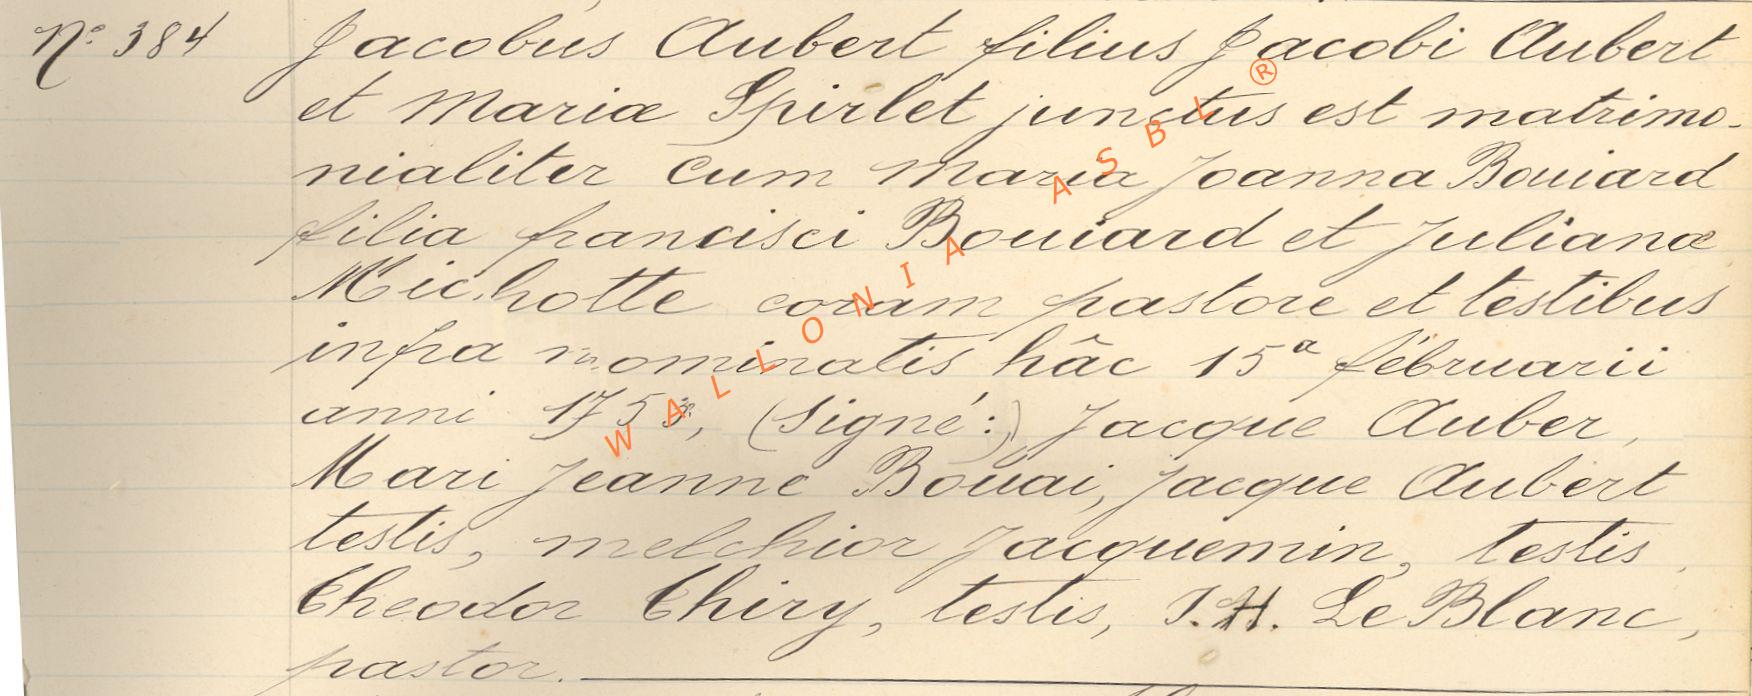 N° 384 Jacobus Aubert filius Jacobi Aubert
et Mariæ Spirlet junctus est matrimo-
nialiter cum Maria Joanna Bouiard
filia francisci Bouiard et Julianæ
Michotte coram pastore et testibus
infra nominatis hâc 15ª februarii
anni 1753, (signé:) Jacque Auber,
Mari Jeanne Bouai, Jacque Aubert
testis, melchior Jacquemin, testis,
Theodor Thiry, testis, J. H. Le Blanc,
pastor.
WALLONIA ASBL ®